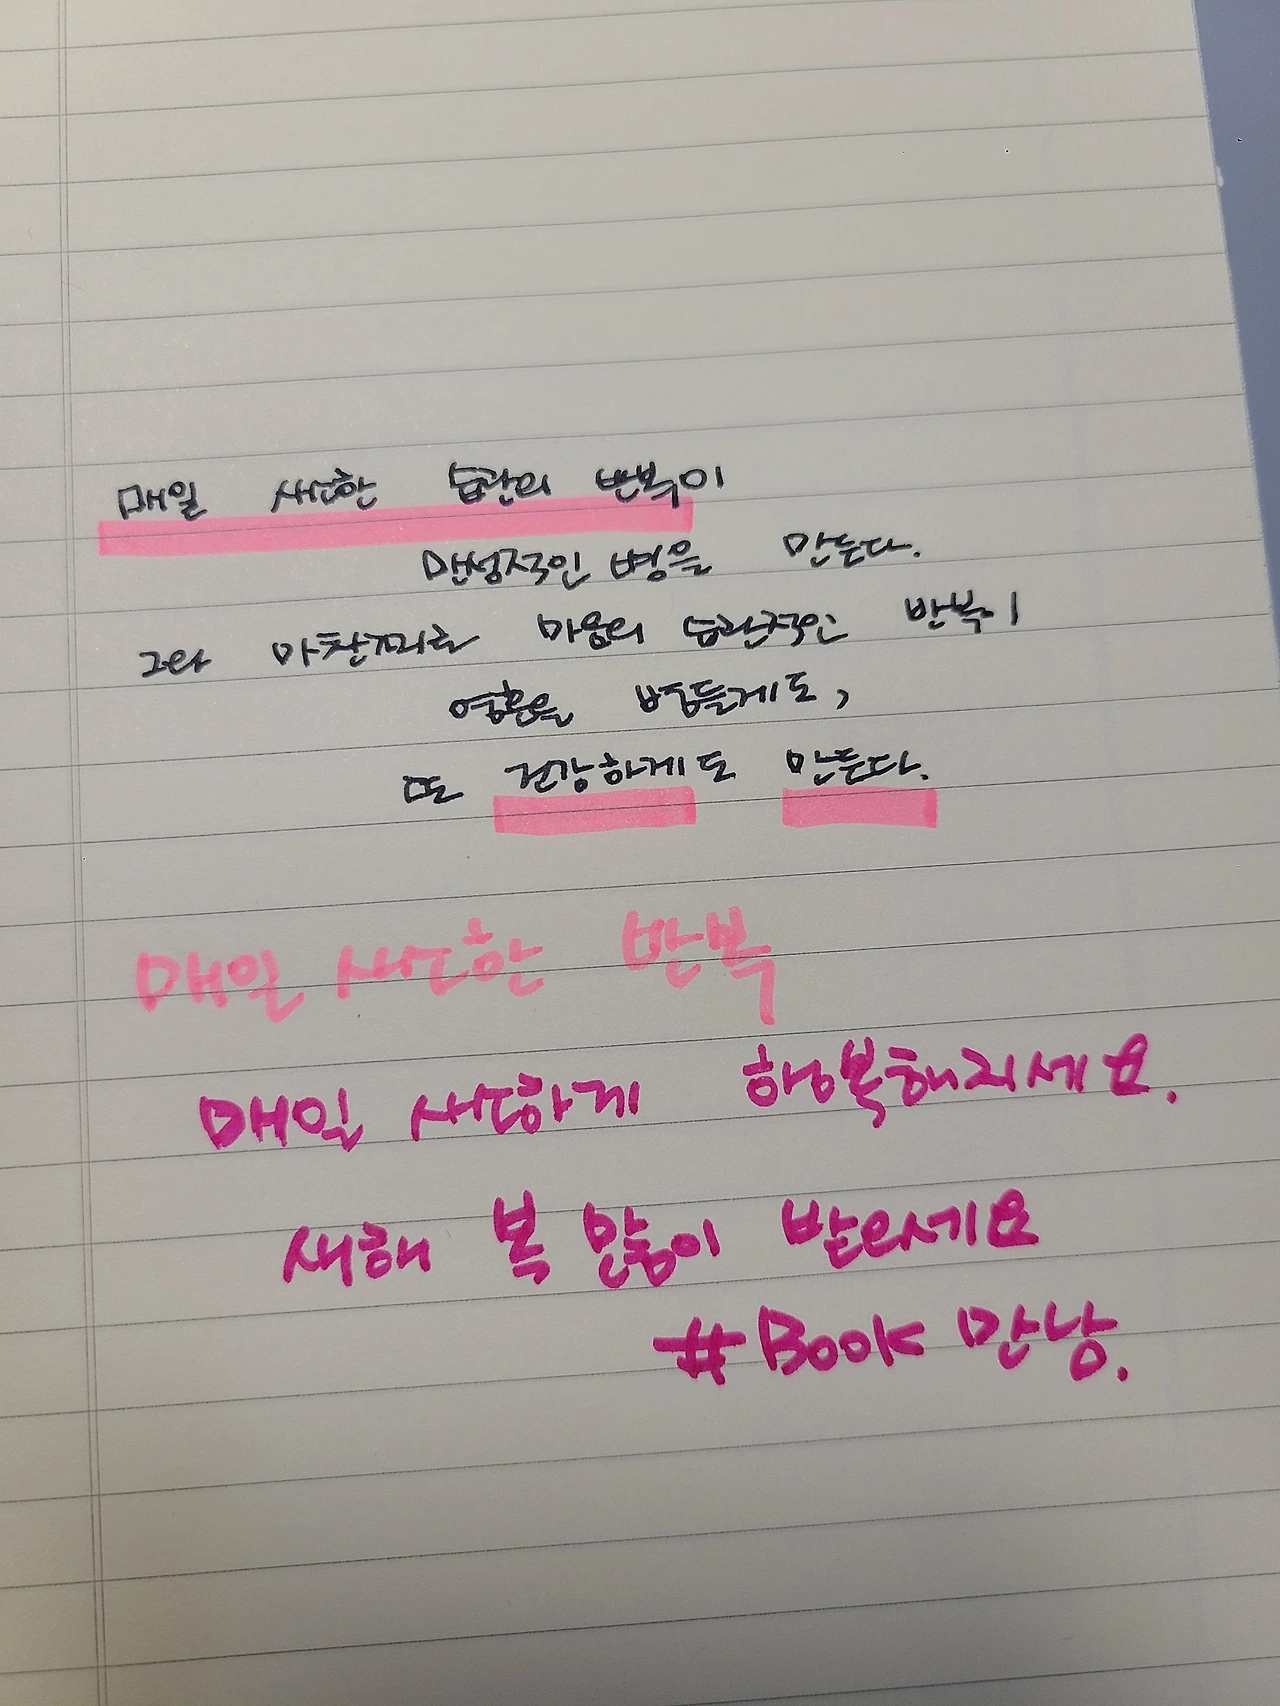 매일 사소한 습관의 반복이
만성적인 병을 만든다.
그와 마찬가지로 마음의 습관적인 반복이
영혼을 병들게도,
또 건강하게도 만든다.
매일 사소한 반복
매일 사소하게 행복해지세요.
새해 복 많이 받으세요
#Book만남.